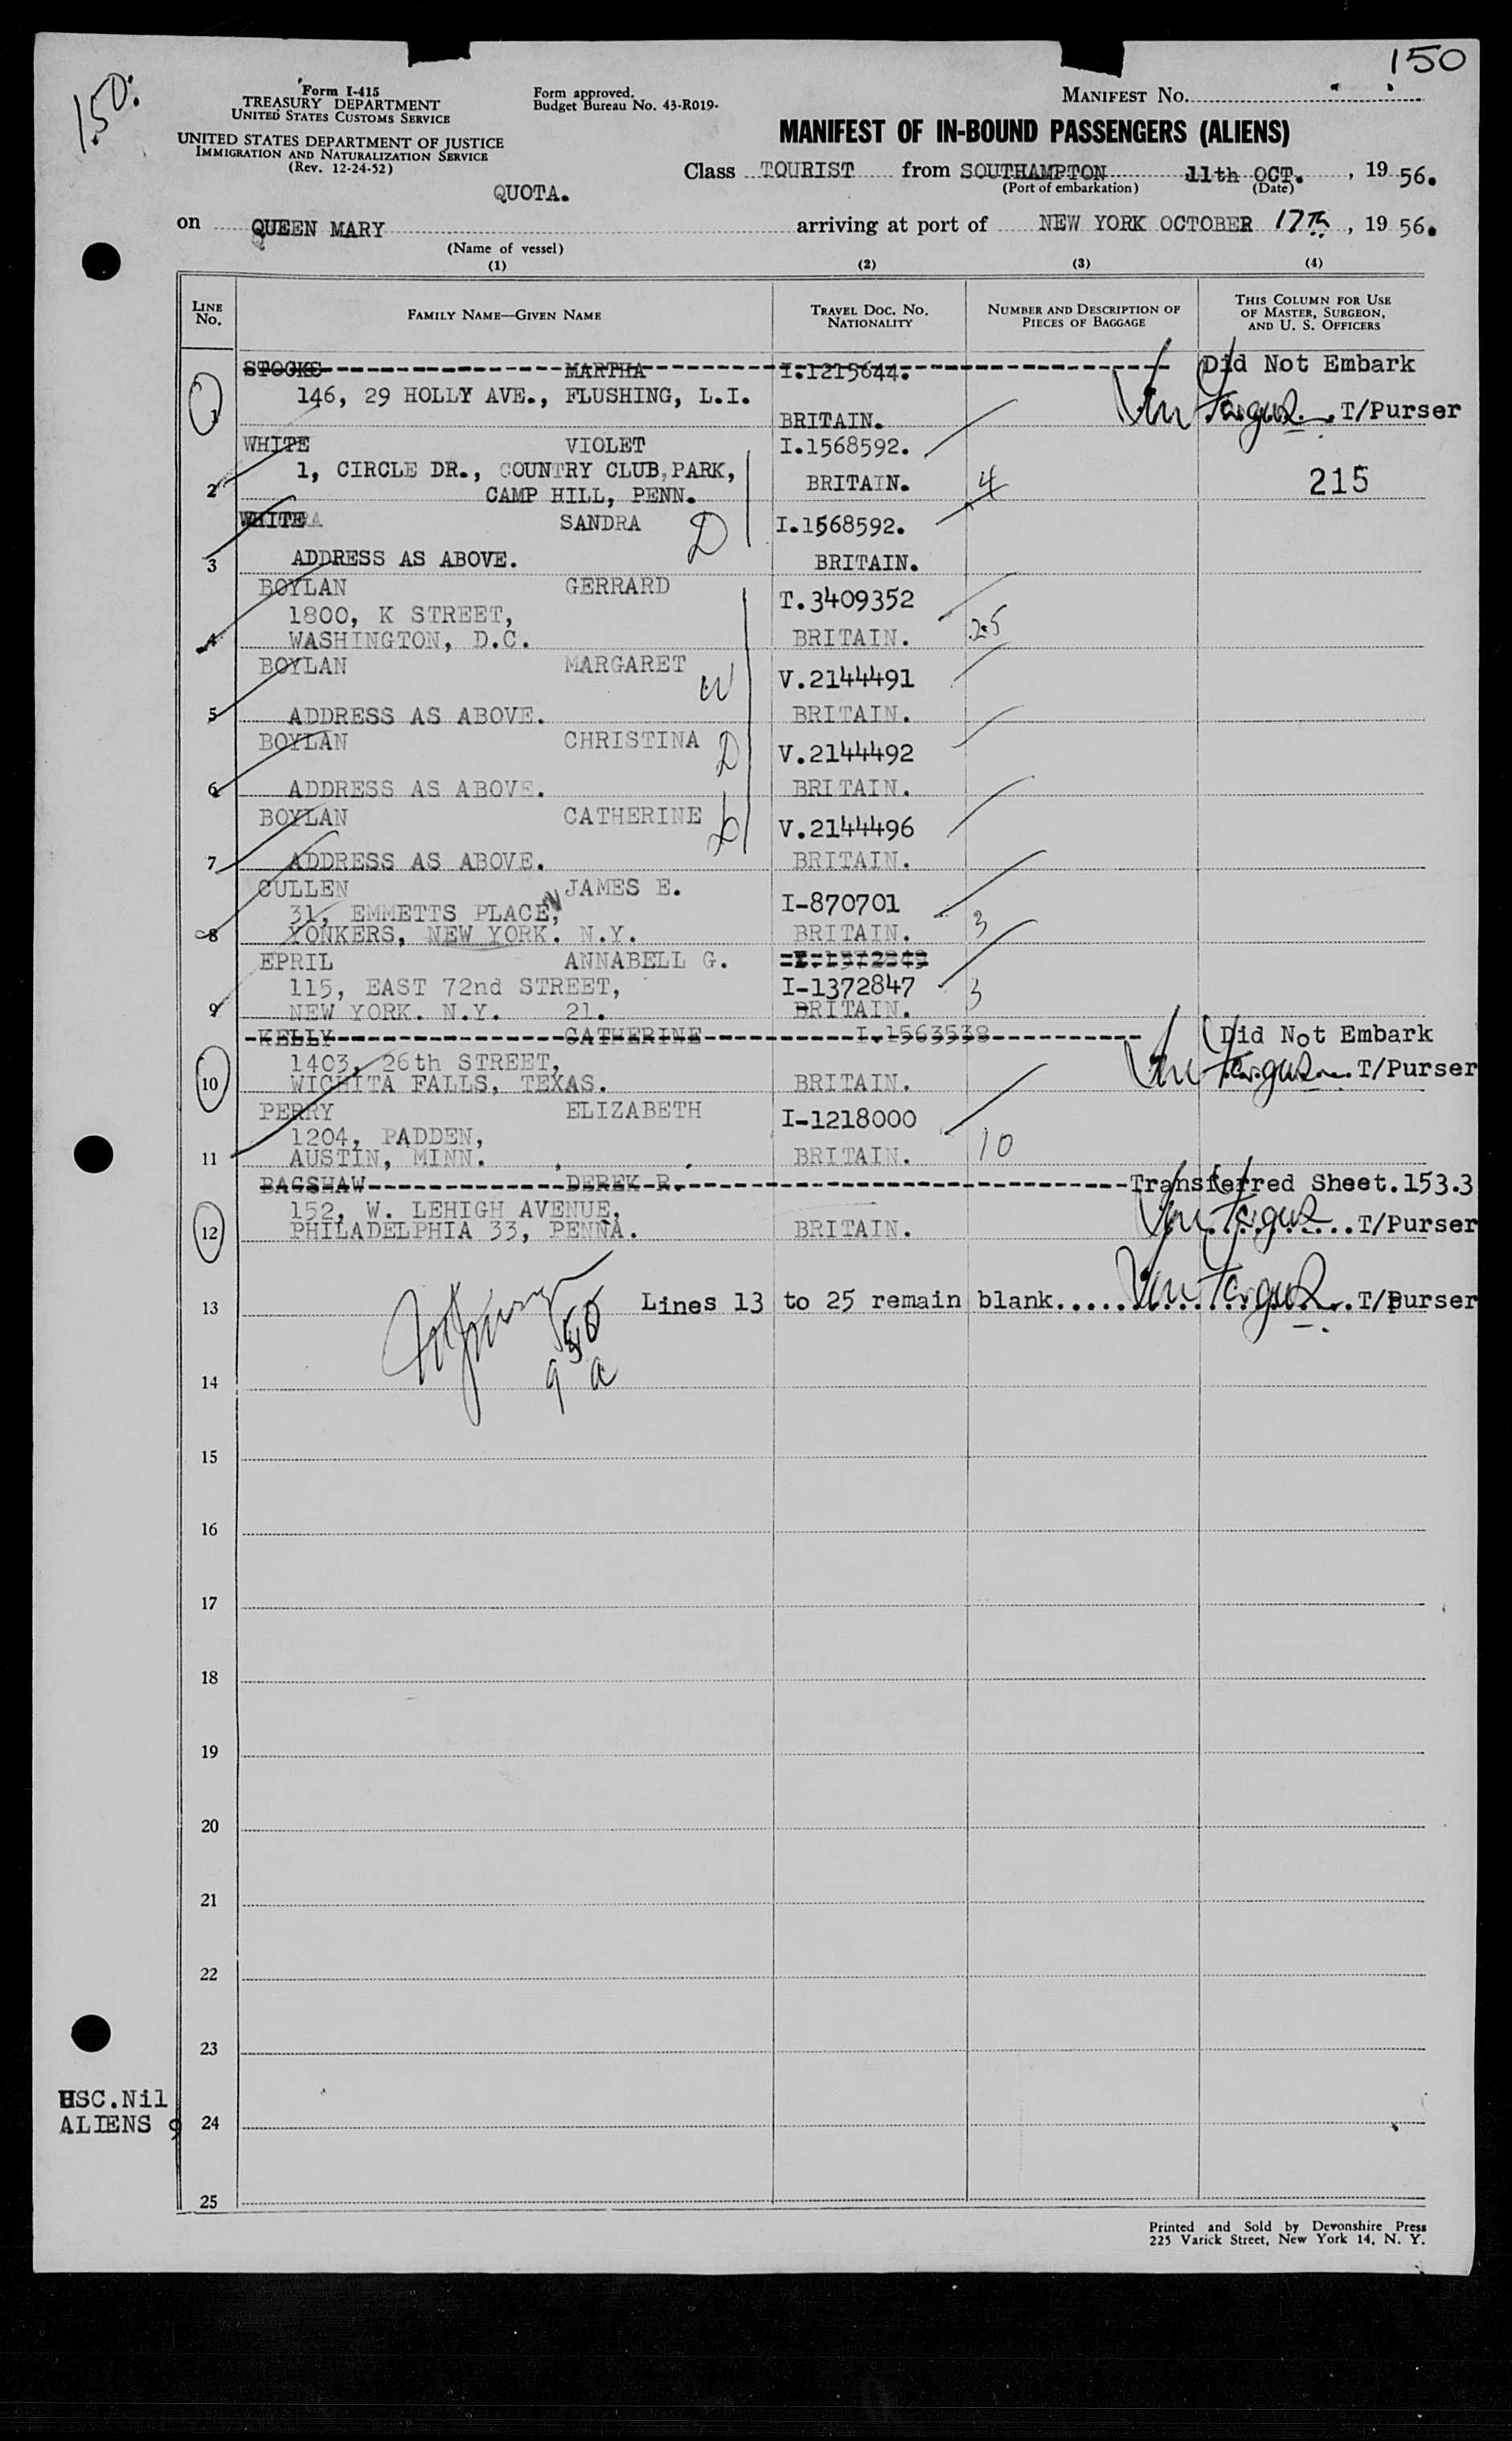 150
150.
Form I-415
TREASURY DEPARTMENT
UNITED STATES CUSTOMS SERVICE
UNITED STATES DEPARTMENT OF JUSTICE
IMMIGRATION AND NATURALIZATION SERVICE
(Rev. 12-24-52)
Form approved.
Budget Bureau No. 43-R019-
MANIFEST NO.
MANIFEST OF IN-BOUND PASSENGERS (ALIENS)
Class TOURIST from SOUTHAMPTON 11th OCT. , 19 56.
(Port of embarkation) (Date)
QUOTA.
on QUEEN MARY arriving at port of NEW YORK OCTOBER 17th , 19 56.
(Name of vessel)
(1) (2) (3) (4)
LINE NO. FAMILY NAME—GIVEN NAME TRAVEL DOC. NO. NATIONALITY NUMBER AND DESCRIPTION OF PIECES OF BAGGAGE THIS COLUMN FOR USE OF MASTER, SURGEON, AND U. S. OFFICERS
STOCKS MARTHA I.1215644. Did Not Embark
146, 29 HOLLY AVE., FLUSHING, L.I.
1 BRITAIN. T/Purser
WHITE VIOLET I.1568592.
1, CIRCLE DR., COUNTRY CLUB PARK,
2 CAMP HILL, PENN. BRITAIN. 4 215
WHITE SANDRA D I.1568592.
3 ADDRESS AS ABOVE. BRITAIN.
BOYLAN GERRARD T.3409352
1800, K STREET,
4 WASHINGTON, D.C. BRITAIN. 25
BOYLAN MARGARET W V.2144491
5 ADDRESS AS ABOVE. BRITAIN.
BOYLAN CHRISTINA D V.2144492
6 ADDRESS AS ABOVE. BRITAIN.
BOYLAN CATHERINE D V.2144496
7 ADDRESS AS ABOVE. BRITAIN.
CULLEN JAMES E. I-870701
31, EMMETTS PLACE,
8 YONKERS, NEW YORK. N.Y. BRITAIN. 3
EPRIL ANNABELL G.
115, EAST 72nd STREET, I-1372847
9 NEW YORK. N.Y. 21. BRITAIN. 3
KELLY CATHERINE I.1563538 Did Not Embark
1403, 26th STREET, T/Purser
10 WICHITA FALLS, TEXAS. BRITAIN.
PERRY ELIZABETH I-1218000
1204, PADDEN,
11 AUSTIN, MINN. BRITAIN. 10
BAGSHAW DEREK R. Transferred Sheet.153.3
152, W. LEHIGH AVENUE,
12 PHILADELPHIA 33, PENNA. BRITAIN. T/Purser
13 Lines 13 to 25 remain blank. T/purser
14
15
16
17
18
19
20
21
22
23
USC.Nil
ALIENS 9
24
25
Printed and Sold by Devonshire Press
225 Varick Street, New York 14, N. Y.